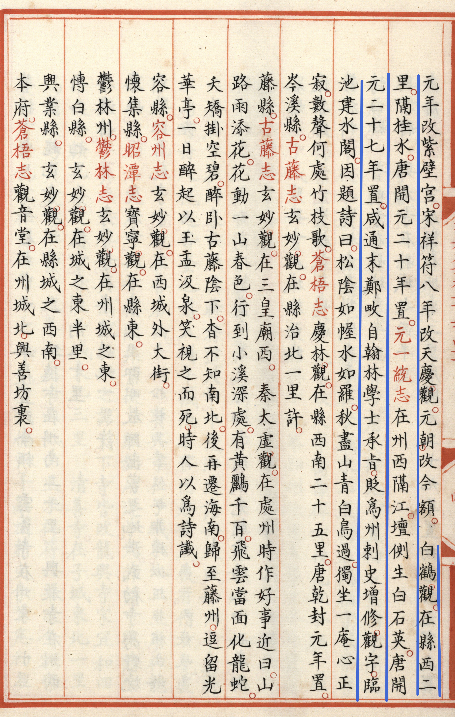 元年改紫壁宮宋祥符八年改天慶觀元朝改今額 白鶴觀在縣西二
里隔桂水唐開元二十年置元一統志在州西隔江壇側生白石英唐開
元二十七年置咸通末鄭畋自翰林學士承旨貶爲州刺史增修觀宇臨
池建水閣因題詩曰松陰如幄水如羅秋盡山青白鳥過獨坐一庵心正
寂數聲何處竹枝歌蒼梧志慶林觀在縣西南二十五里唐乾封元年置
岑溪縣古藤志玄妙觀在縣治北一里許
藤縣古藤志玄妙觀在三皇廟西 秦太虛觀在處州時作好事近曰山
路雨添花花動一山春色行到小溪深處有黃鸝千百飛雲當面化龍蛇
夭矯掛空碧醉卧古藤陰下杳不知南北後再遷海南歸至藤州逗留光
華亭一日醉起以玉盂汲泉笑視之而死時人以爲詩讖
容縣容州志玄妙觀在西城外大街
懷集縣昭潭志寶寧觀在縣東
鬱林州鬱林志玄妙觀在州城之東
博白縣 玄妙觀在城之東半里
興業縣 玄妙觀在縣城之西南
本府蒼梧志觀音堂在州城北興善坊裏